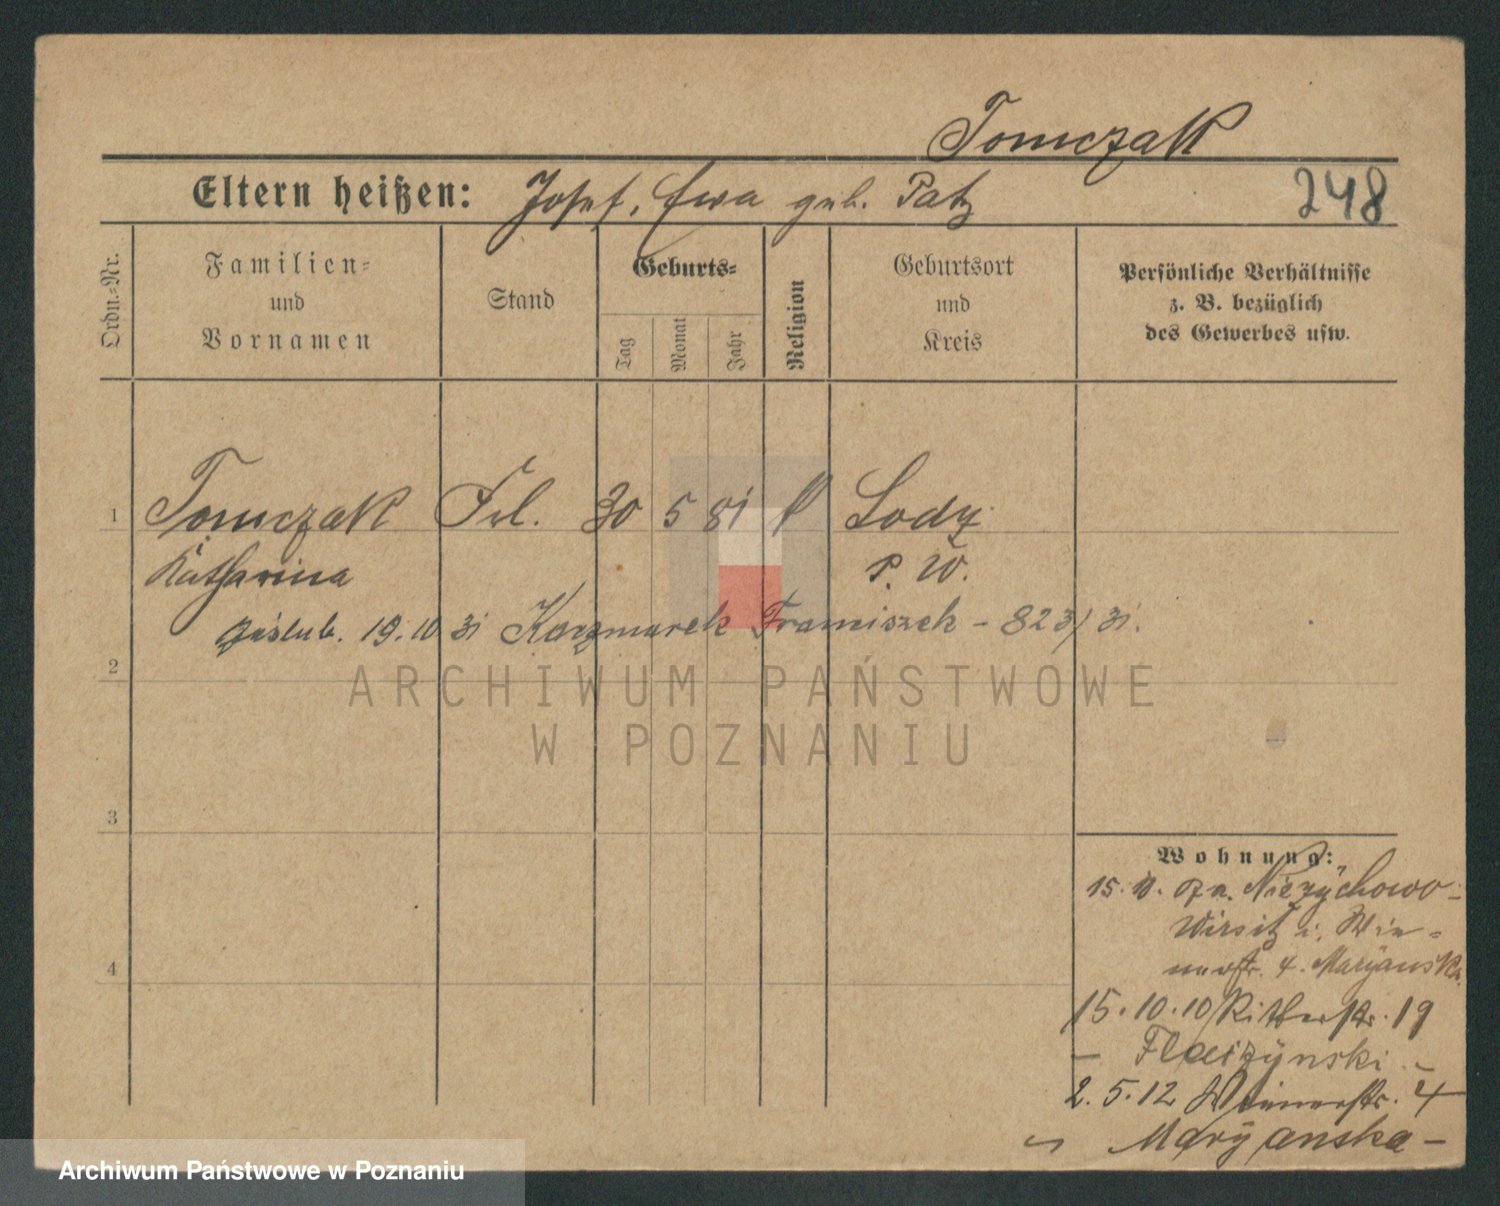 Tomczak
Eltern heißen: Josef, Ewa geb. Patz
248
Ordn.-Nr.
Familien- und Vornamen
Stand
Geburts-
Tag Monat Jahr
Religion
Geburtsort und Kreis
Persönliche Verhältnisse z. B. bezüglich des Gewerbes usw.
1 Tomczak Frl. 30 5 81 k Lodz
Katharina P. W.
zaślub. 19.10 31 Kaczmarek Franciszek - 823/31.
2
ARCHIWUM PAŃSTWOWE
W POZNANIU
3
Wohnung:
15. 10. Niezÿchowo-
Wirsitz i. Wie-
nerstr. 4. Marÿanska
4
15.10.10 Ritterstr. 19
- Flaczÿnski -
2.5.12 Wienerstr. 4
Marÿanska -
Archiwum Państwowe w Poznaniu